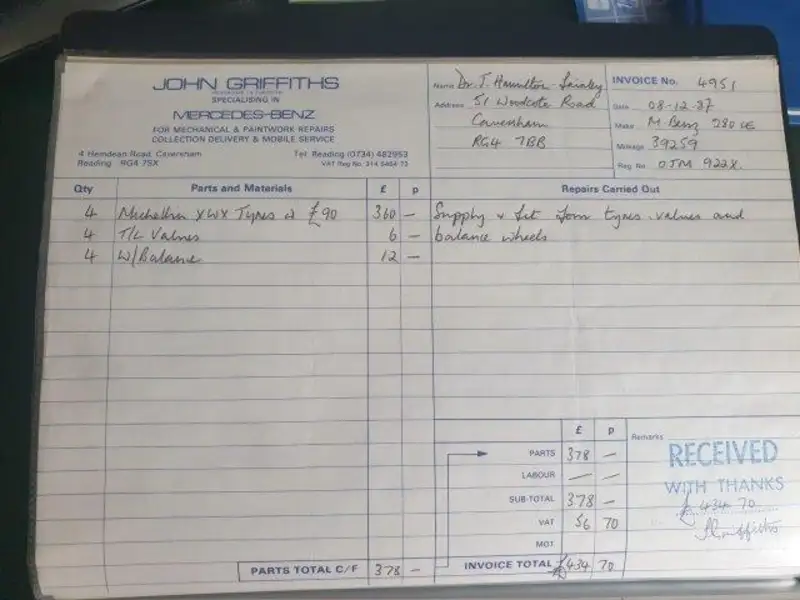 JOHN GRIFFITHS
SPECIALISING IN
MERCEDES-BENZ
FOR MECHANICAL & PAINTWORK REPAIRS
COLLECTION DELIVERY & MOBILE SERVICE
4 Hemdean Road, Caversham
Reading RG4 7SX
Tel. Reading (0734) 482953
VAT Reg No. 314 5464 73
Name Dr. J. Hamilton-
Address 51 Woodcote Road
Caversham
RG4 7BB
INVOICE No. 4951
Date 08-12-87
Make M. Benz 280 CE
Mileage 39259
Reg. No. 922X
Qty Parts and Materials £ p
4 Michelin XWX Tyres @ £90 360 —
4 T/L Valves 6 —
4 W/Balance 12 —
PARTS TOTAL C/F 378 —
Repairs Carried Out
Supply & fit four tyres, valves and
balance wheels
£ p
PARTS 378 —
LABOUR — —
SUB-TOTAL 378 —
VAT 56 70
MOT
INVOICE TOTAL £434 70
Remarks
RECEIVED
WITH THANKS
£434 70
J Griffiths